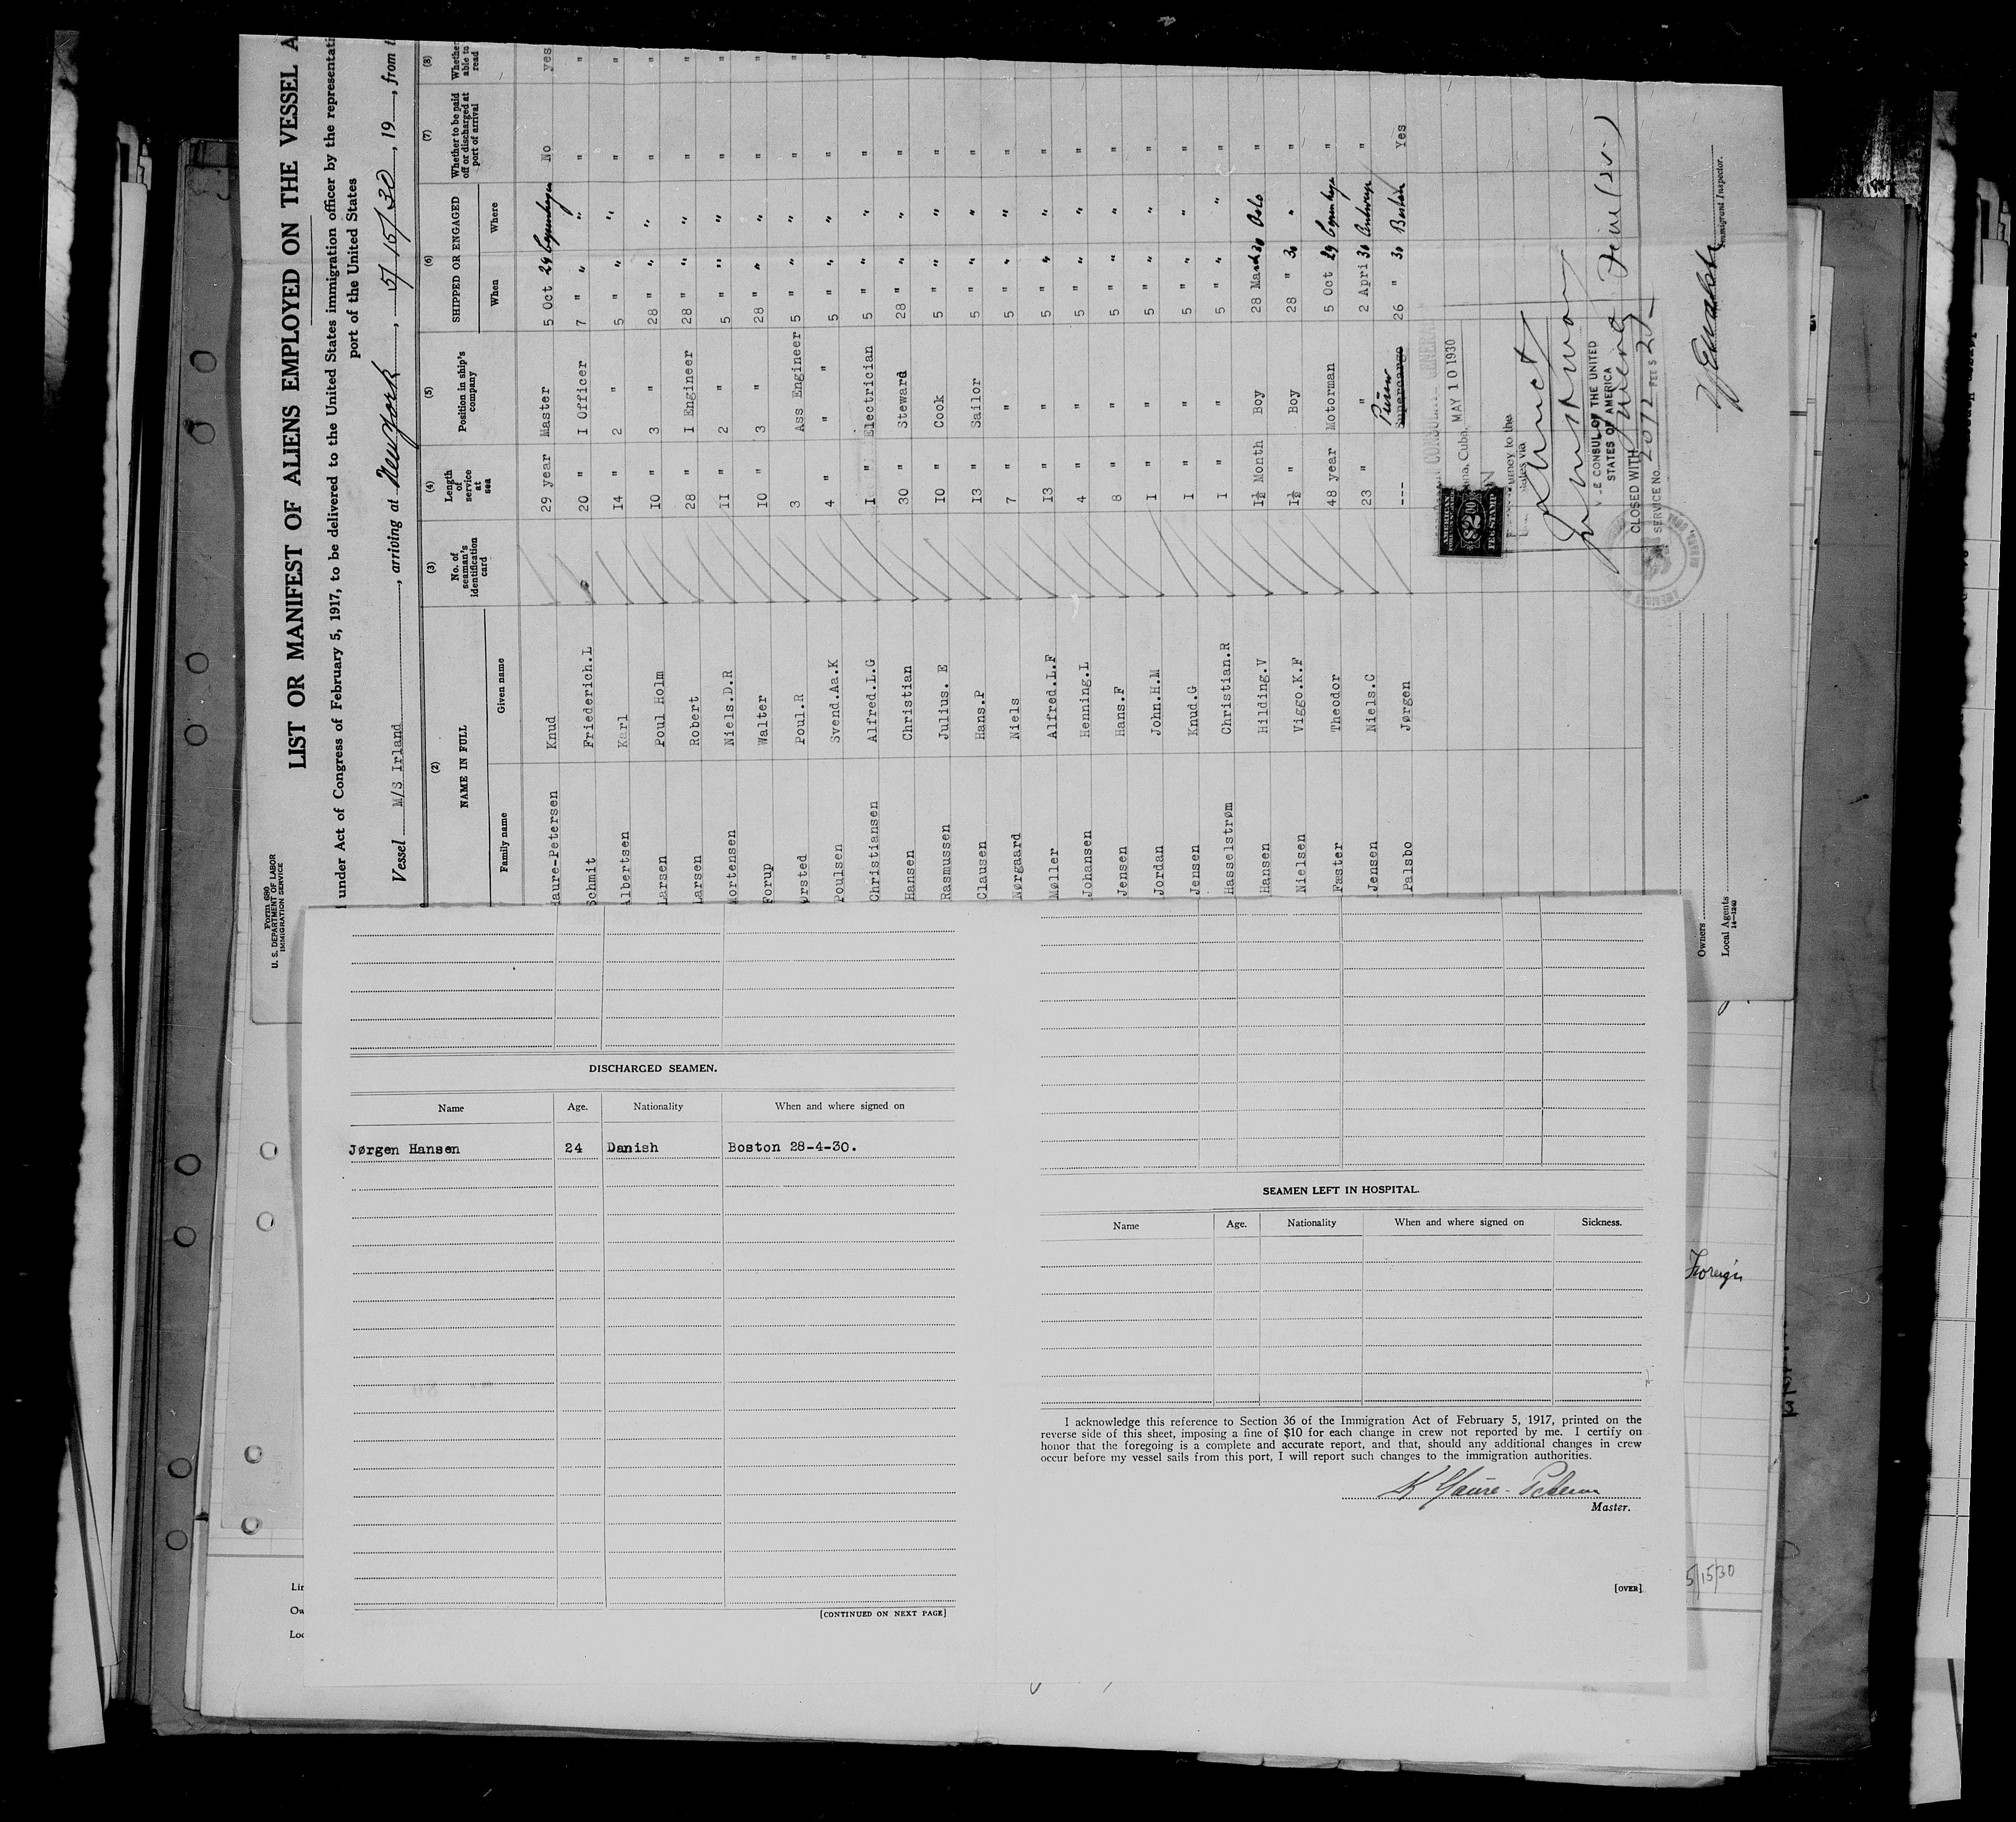 Form 680
U. S. DEPARTMENT OF LABOR
IMMIGRATION SERVICE
LIST OR MANIFEST OF ALIENS EMPLOYED ON THE VESSEL A
under Act of Congress of February 5, 1917, to be delivered to the United States immigration officer by the representati
port of the United States
Vessel M/S Irland, arriving at New York, 5/15/30, 19, from
(2) (3) (4) (5) (6) (7) (8)
NAME IN FULL No. of seaman's identification card Length of service at sea Position in ship's company SHIPPED OR ENGAGED Whether to be paid off or discharged at port of arrival Whether able to read
Family name Given name When Where
aure-Petersen Knud 29 year Master 5 Oct 29 Copenhagen No yes
Schmit Friederich.L 20 " I Officer 7 " " " " "
Albertsen Karl 14 " 2 " 5 " " " " "
Larsen Poul Holm IO " 3 " 28 " " " " "
Larsen Robert 28 " I Engineer 28 " " " " "
Mortensen Niels.D.R II " 2 " 5 " " " " "
Forup Walter IO " 3 " 28 " " " " "
ørsted Poul.R 3 Ass Engineer 5 " " " " "
Poulsen Svend.Aa.K 4 " " 5 " " " " "
Christiansen Alfred.L.G I " Electrician 5 " " " " "
Hansen Christian 30 " Steward 28 " " " "
Rasmussen Julius. E IO " Cook 5 " " " "
Clausen Hans.P 13 " Sailor 5 " " " "
Nørgaard Niels 7 " " 5 " " " "
Møller Alfred.L.F 13 " " 5 " " " "
Johansen Henning.L 4 " " 5 " " " "
Jensen Hans.F 8 " " 5 " " " "
Jordan John.H.M I " " 5 " " " "
Jensen Knud.G I " " 5 " " " "
Hasselstrøm Christian.R I " " 5 " " " "
Hansen Hilding.V I½ Month Boy 28 March 30 Oslo "
Nielsen Viggo.K.F I½ " Boy 28 " 30 " "
Fæster Theodor 48 year Motorman 5 Oct 29 Copenhagen "
Jensen Niels.C 23 " " 2 Apri 30 Antwerp "
Palsbo Jørgen --- Purser Supercargo 26 " 30 Boston Yes
CONSULATE GENERAL
ana, Cuba, MAY 10 1930
urney to the
States via
AMERICAN
$2.00
FEE STAMP
CONSUL OF THE UNITED
STATES OF AMERICA
CLOSED WITH
SERVICE No. 2072 FEE $ 2
Immigrant Inspector.
Owners
Local Agents
14—1240
DISCHARGED SEAMEN.
Name Age. Nationality When and where signed on
Jørgen Hansen 24 Danish Boston 28-4-30.
[CONTINUED ON NEXT PAGE]
SEAMEN LEFT IN HOSPITAL.
Name Age. Nationality When and where signed on Sickness.
I acknowledge this reference to Section 36 of the Immigration Act of February 5, 1917, printed on the
reverse side of this sheet, imposing a fine of $10 for each change in crew not reported by me. I certify on
honor that the foregoing is a complete and accurate report, and that, should any additional changes in crew
occur before my vessel sails from this port, I will report such changes to the immigration authorities.
K Haure-Petersen
Master.
[OVER]
Foreign
5/15/30
Lin
Ow
Loc